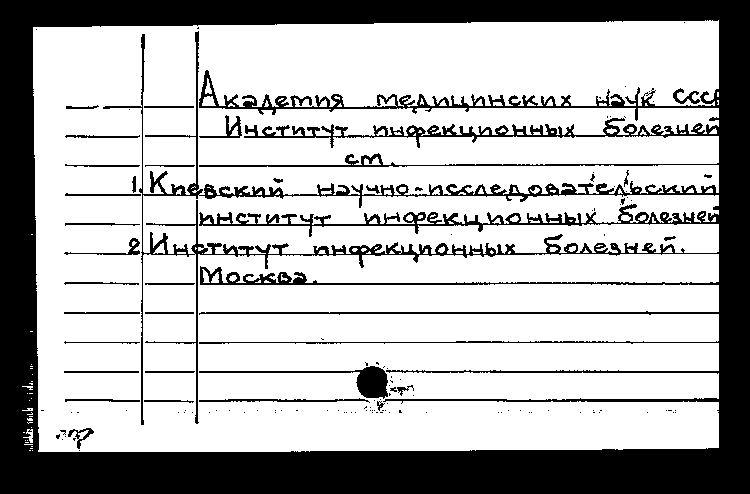 Академия медицинских наук СССР
Институт инфекционных болезней
см.
1. Киевский научно-исследовательский
институт инфекционных болезней
2 Институт инфекционных болезней.
Москва.